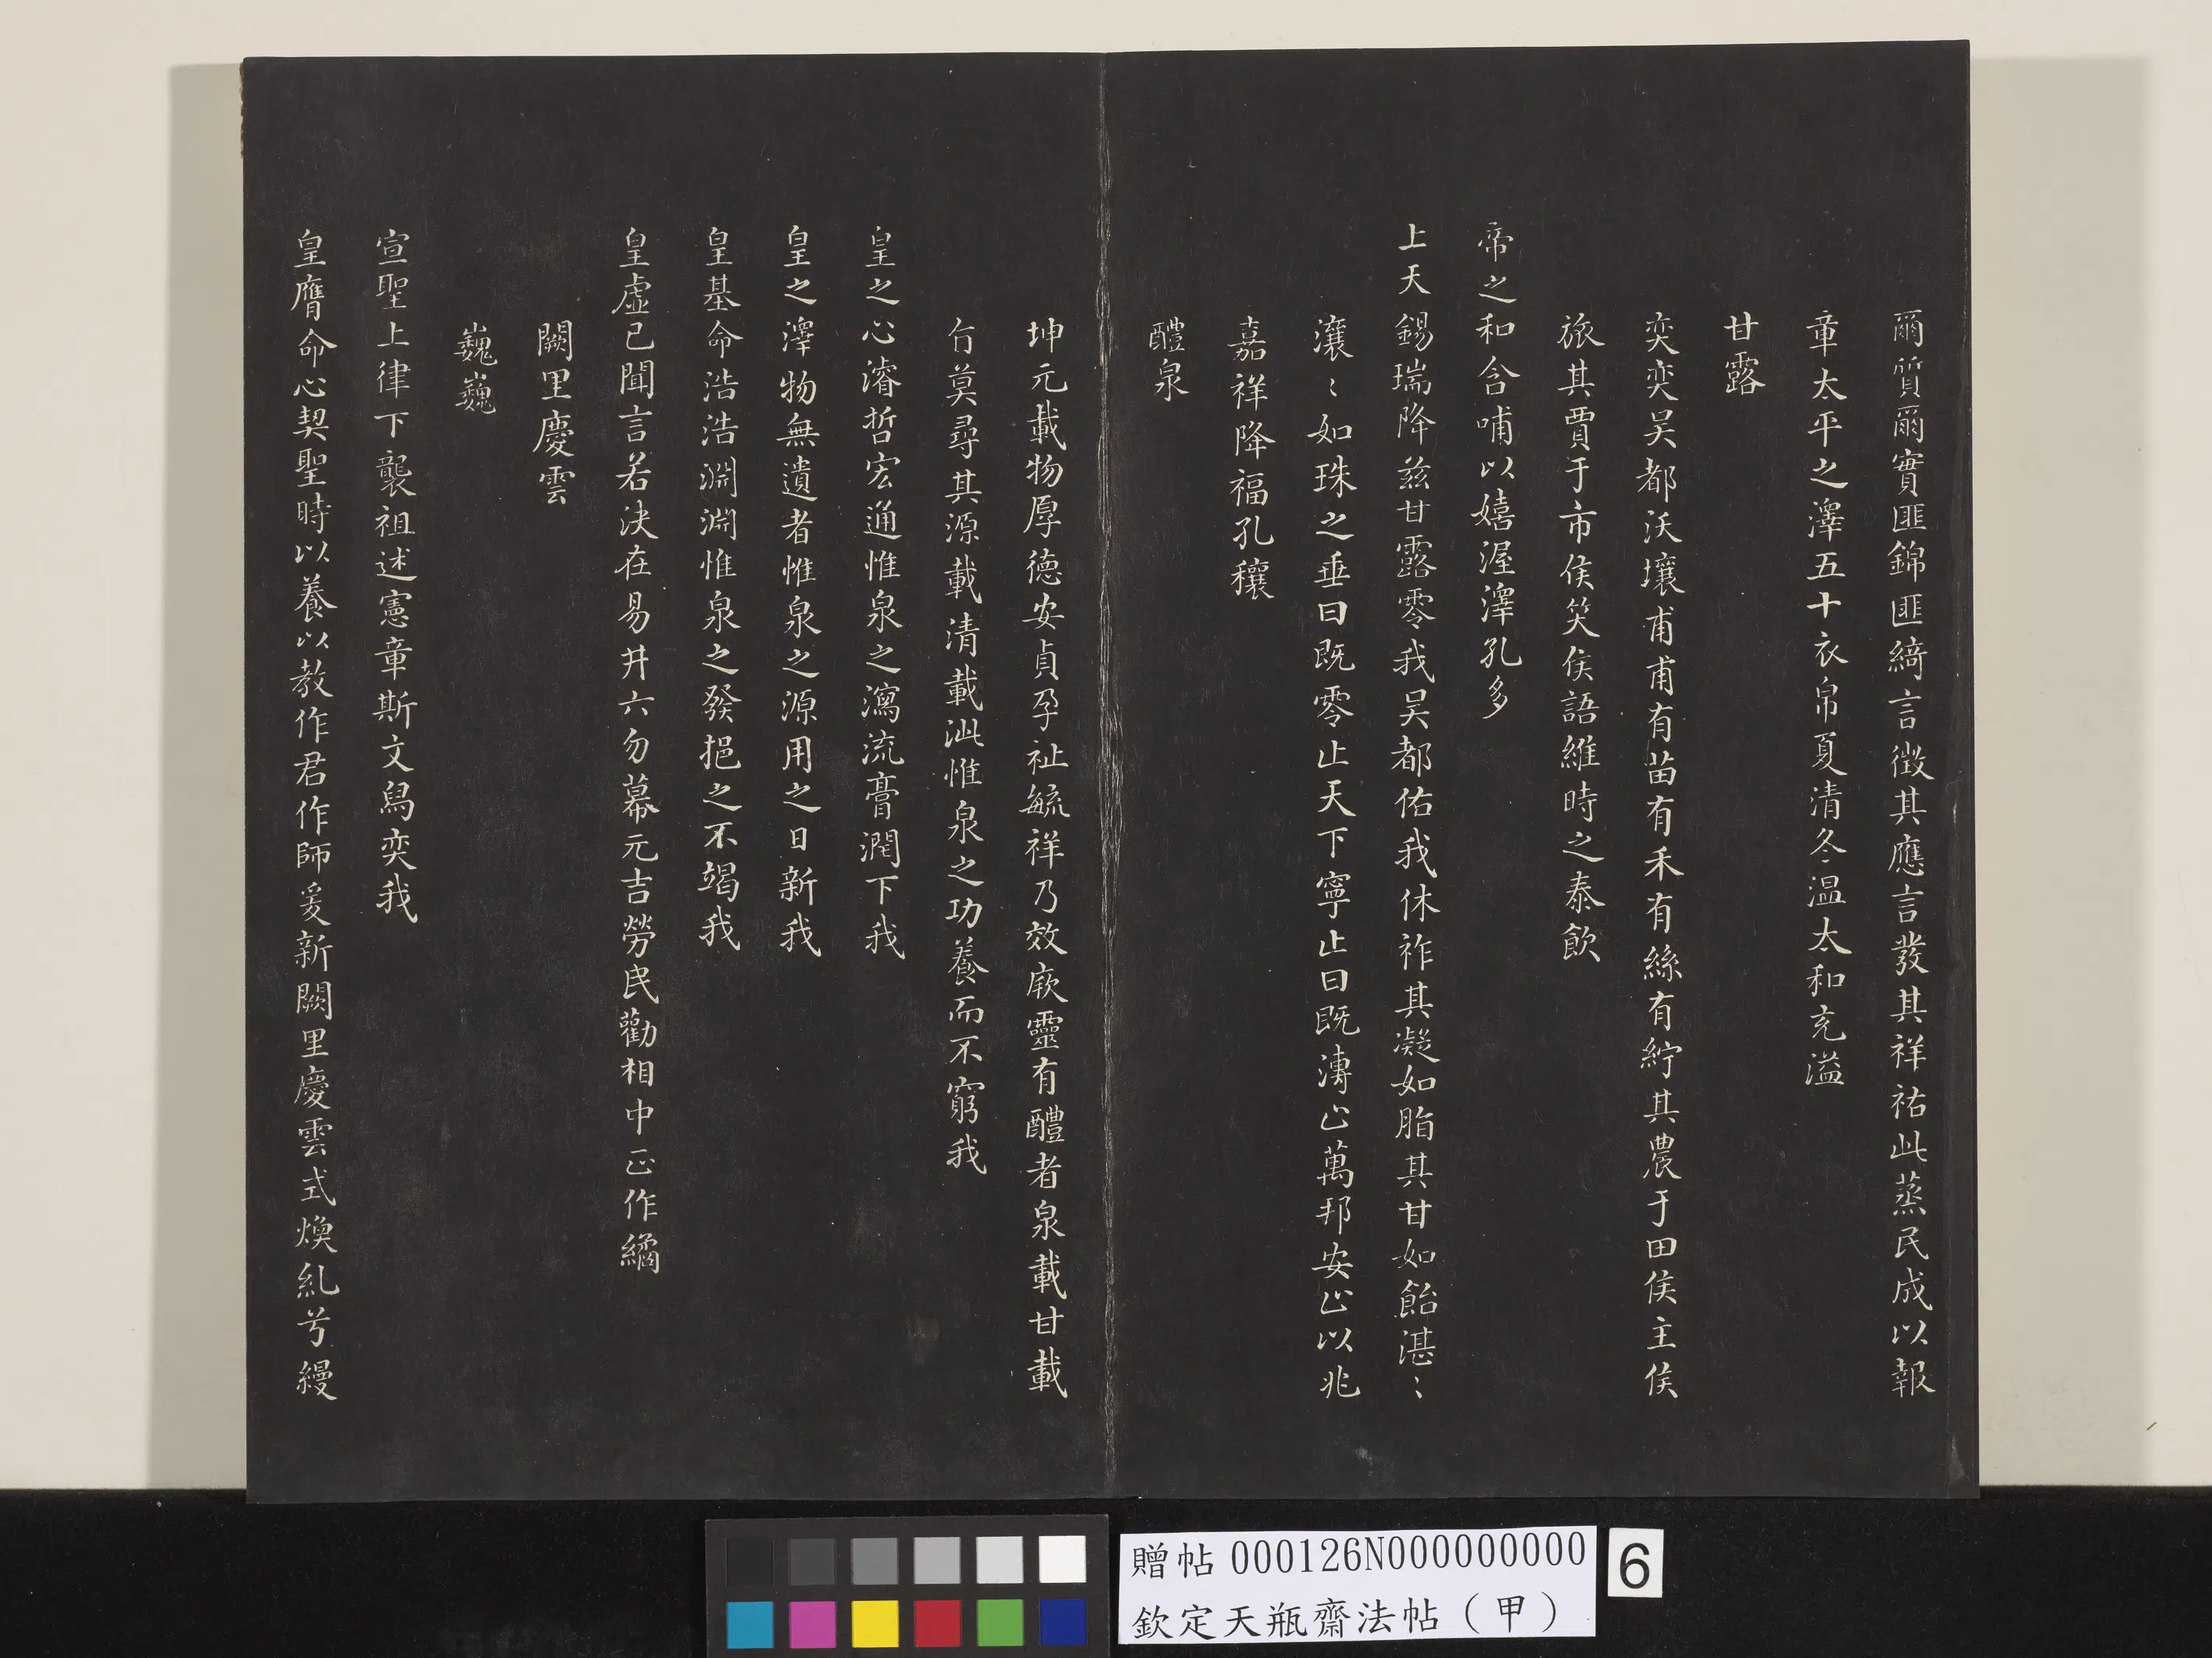 爾質爾實匪錦匪綺言徵其應言發其祥祐此蒸民成以報
章太平之澤五十衣帛夏清冬温太和充溢
甘露
奕奕吴都沃壤甫甫有苗有禾有絲有紵其農于田侯主侯
旅其賈于市侯笑侯語維時之泰飲
帝之和含哺以嬉渥澤孔多
上天錫瑞降兹甘露零我吴都佑我休祚其凝如脂其甘如飴湛〻
瀼〻如珠之垂曰既零止天下寧止曰既漙止萬邦安止以兆
嘉祥降福孔穰
醴泉
坤元載物厚德安貞孕祉毓祥乃效厥靈有醴者泉載甘載
旨莫尋其源載清載泚惟泉之功養而不窮我
皇之心濬哲宏通惟泉之瀉流膏潤下我
皇之澤物無遺者惟泉之源用之日新我
皇基命浩浩淵淵惟泉之發挹之不竭我
皇虛已聞言若決在易井六勿幕元吉勞民勸相中正作繘
闕里慶雲
巍巍
宣聖上律下襲祖述憲章斯文烏奕我
皇膺命心契聖時以養以教作君作師爰新闕里慶雲式煥糺兮縵
贈帖 000126N000000000
欽定天瓶齋法帖（甲）
6